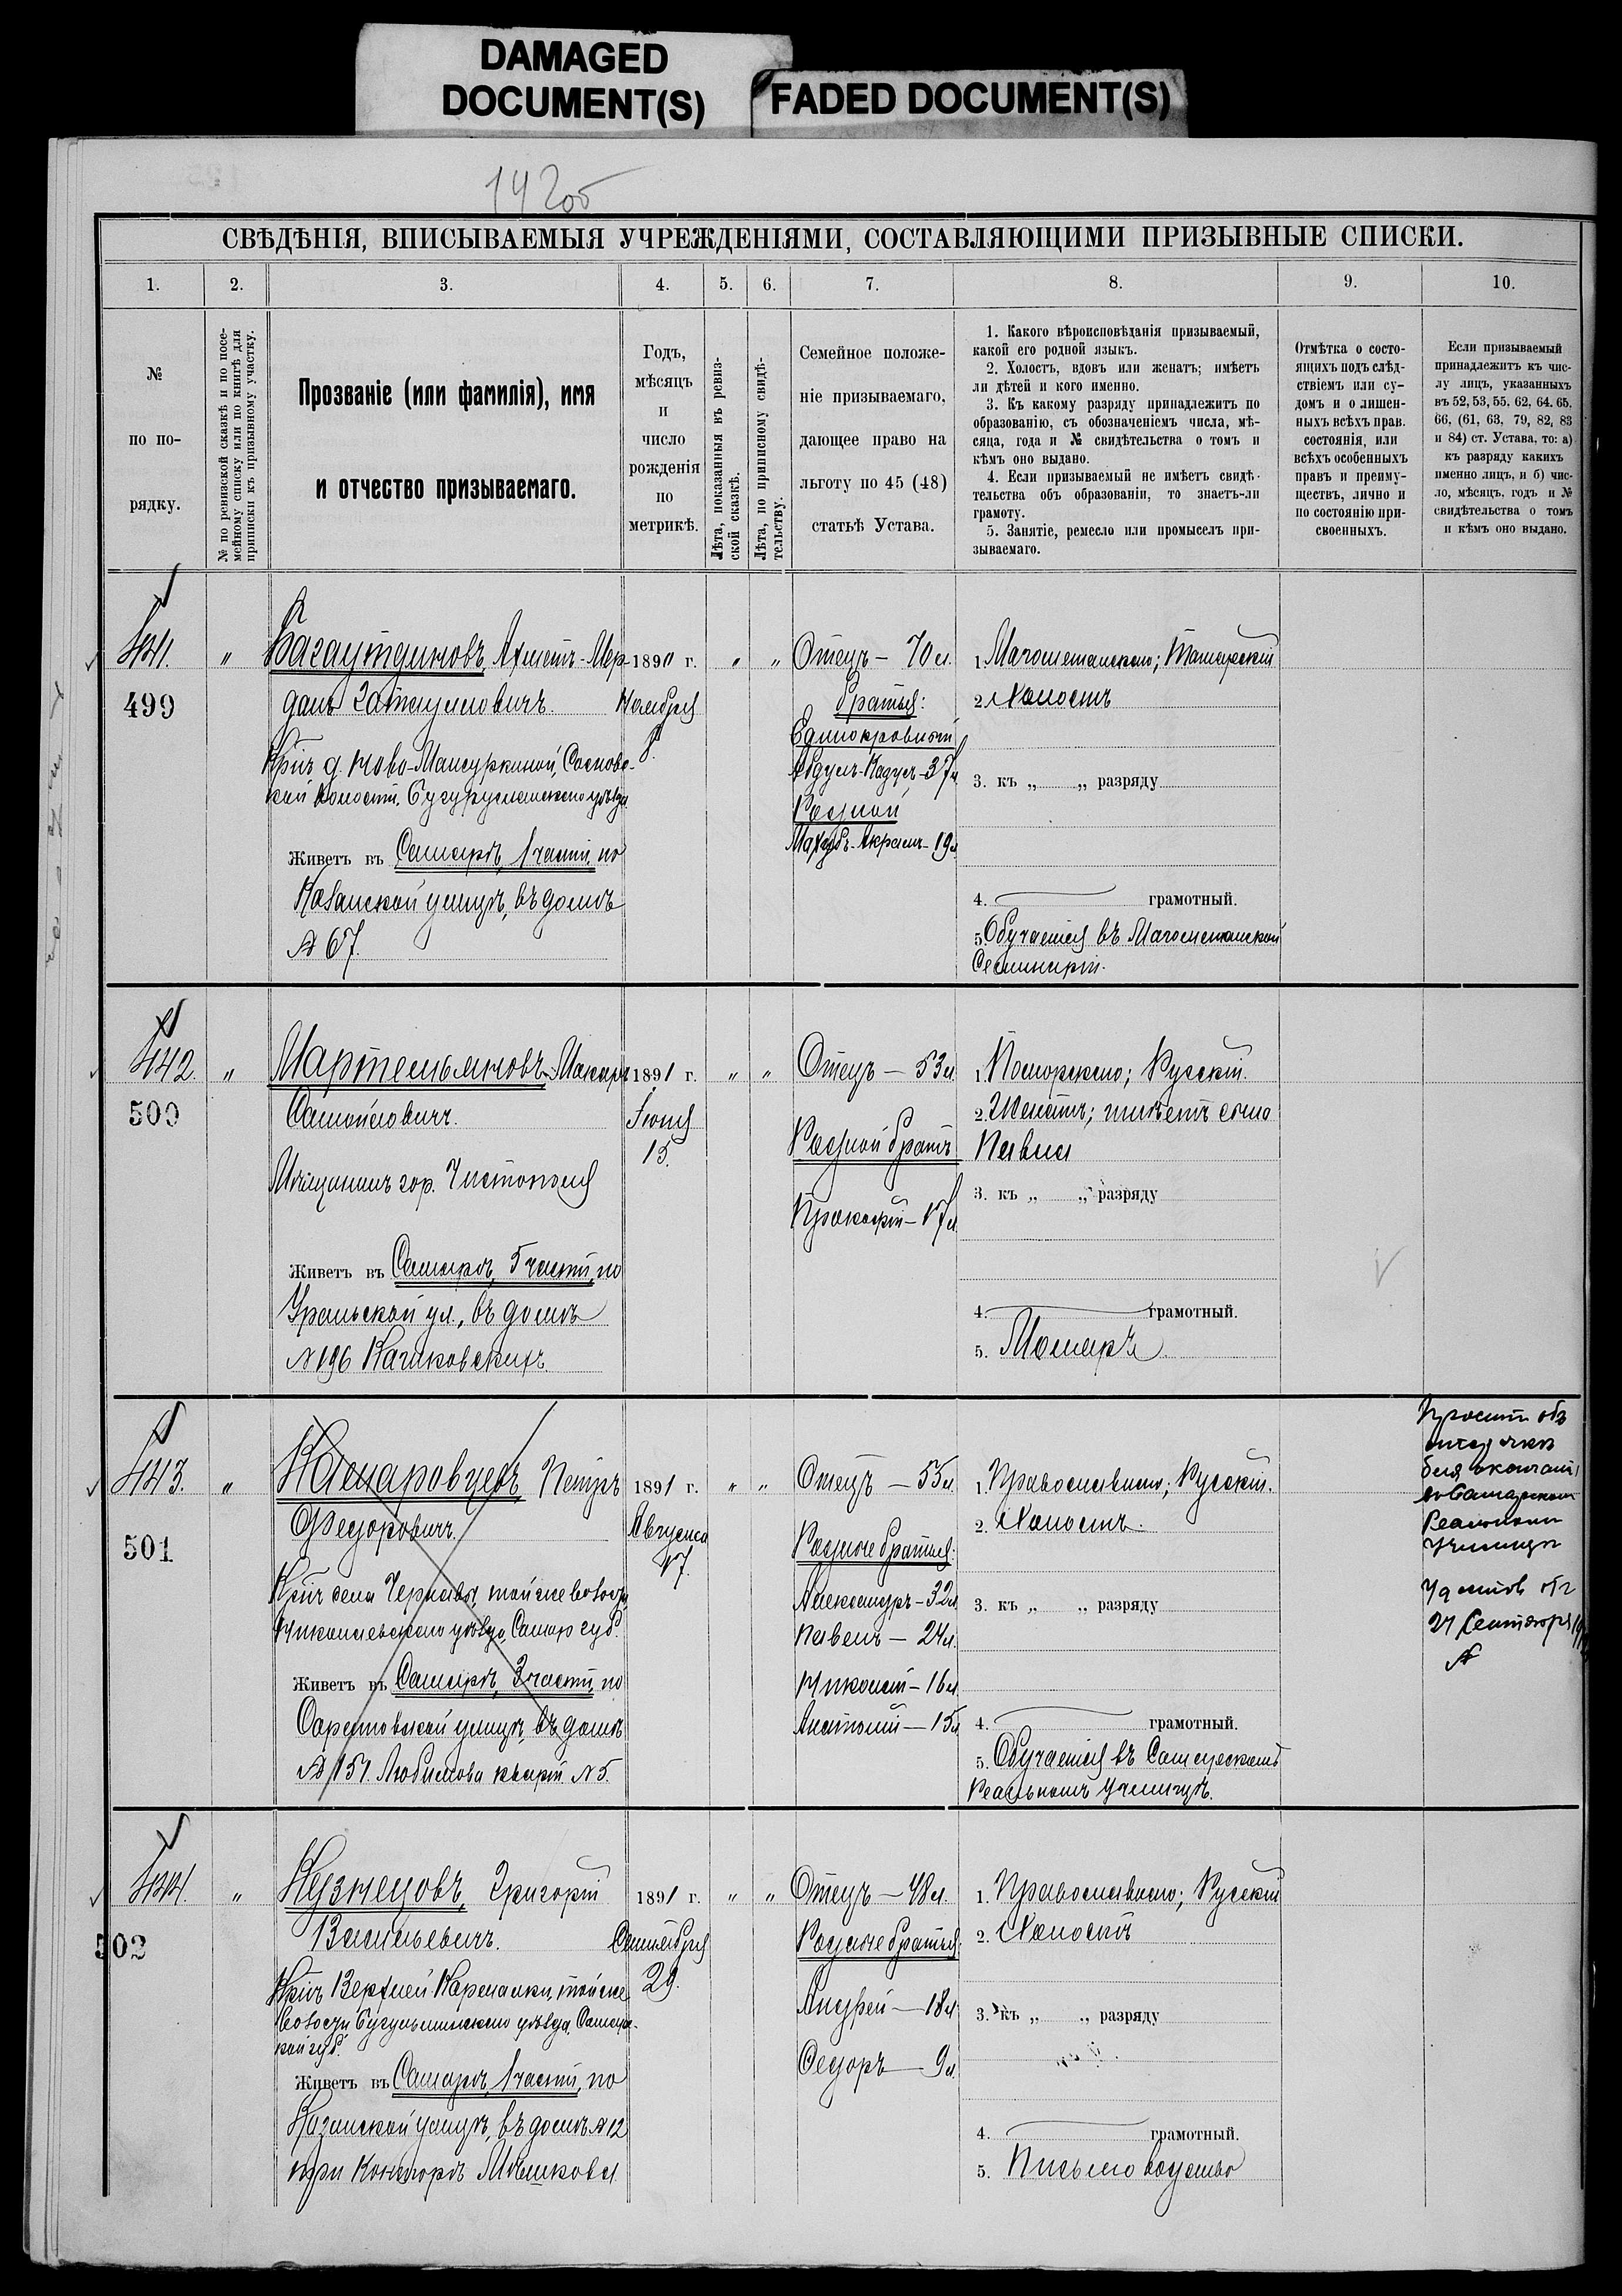 DAMAGED
DOCUMENT(S)
FADED DOCUMENT(S)
142об
СВѢДѢНІЯ, ВПИСЫВАЕМЫЯ УЧРЕЖДЕНІЯМИ, СОСТАВЛЯЮЩИМИ ПРИЗЫВНЫЕ СПИСКИ.
1. 2. 3. 4. 5. 6. 7. 8. 9. 10.
№
по по-
рядку.
№ по ревизской сказкѣ и по посе-
мейному списку или по книгѣ для
приписки къ призывному участку.
Прозваніе (или фамилія), имя
и отчество призываемаго.
Годъ,
мѣсяцъ
и
число
рожденія
по
метрикѣ.
Лѣта, показанныя въ ревиз-
ской сказкѣ.
Лѣта, по приписному свидѣ-
тельству.
Семейное положе-
ніе призываемаго,
дающее право на
льготу по 45 (48)
статьѣ Устава.
1. Какого вѣроисповѣданія призываемый,
какой его родной языкъ.
2. Холостъ, вдовъ или женатъ; имѣетъ
ли дѣтей и кого именно.
3. Къ какому разряду принадлежитъ по
образованію, съ обозначеніемъ числа, мѣ-
сяца, года и № свидѣтельства о томъ и
кѣмъ оно выдано.
4. Если призываемый не имѣетъ свидѣ-
тельства объ образованіи, то знаетъ-ли
грамоту.
5. Занятіе, ремесло или промыселъ при-
зываемаго.
Отмѣтка о состо-
ящихъ подъ слѣд-
ствіемъ или су-
домъ и о лишен-
ныхъ всѣхъ прав.
состоянія, или
всѣхъ особенныхъ
правъ и преиму-
ществъ, лично и
по состоянію при-
своенныхъ.
Если призываемый
принадлежитъ къ чис-
лу лицъ, указанныхъ
въ 52, 53, 55, 62, 64, 65,
66, (61, 63, 79, 82, 83
и 84) ст. Устава, то: а)
къ разряду какихъ
именно лицъ, и б) чис-
ло, мѣсяцъ, годъ и №
свидѣтельства о томъ
и кѣмъ оно выдано.
441.
499
"
Багаутдиновъ, Ахметъ-Мер-
данъ Гатаулловичъ.
Кр-нъ д. Ново-Мансуркиной, Сосновс-
кой волости, Бугурусланскаго уѣзда
Живетъ въ Самарѣ, 1 части, по
Казанской улицѣ, въ домѣ
№ 67.
1890 г.
Ноября
8.
" "
Отецъ — 70 л.
братья:
Единокровный
Абдулъ-Кадусъ — 37 л.
Родной
-Акрамъ — 19 л.
1. Магометанскаго; Татарскій
2. Холостъ
3. къ „ „ разряду
4. грамотный.
5. Обучается въ Магометанской
Семинаріи.
442.
500
"
Мартемьяновъ, Макаръ
Самойловичъ.
Мѣщанинъ гор. Чистополя
Живетъ въ Самарѣ, 5 части, по
Уральской ул., въ домѣ
№ 196 Качковскихъ.
1891 г.
Іюня
15.
" "
Отецъ — 53 л.
Родной братъ
Прокофій — 17 л.
1. Поморскаго; Русскій.
2. Женатъ; имѣетъ сына
Павла
3. къ „ „ разряду
4. грамотный.
5. Маляръ
443.
501
"
Комаровцевъ, Петръ
Федоровичъ.
Кр-нъ села Чернавы, той же волости,
Николаевскаго уѣзда, Самар. губ.
Живетъ въ Самарѣ, 3 части, по
Саратовской улицѣ, въ домѣ
№ 151. Любимова кварт. № 5.
1891 г.
Августа
17.
" "
Отецъ — 55 л.
Родные братья:
Александръ — 32 л.
Павелъ — 24 л.
Николай — 16 л.
Анатолій — 15 л.
1. Православнаго; Русскій.
2. Холостъ.
3. къ „ „ разряду
4. грамотный.
5. Обучается въ Самарскомъ
Реальномъ училищѣ.
Проситъ объ
отсрочкѣ
для окончанія
въ Самарскомъ
Реальномъ
Училищѣ
отъ
21 Сентября
444.
502
"
Кузнецовъ, Григорій
Васильевичъ.
Кр-нъ Верхней Кармалки, той же
волости Бугульминскаго уѣзда, Самарс-
кой губ.
Живетъ въ Самарѣ, 1 части, по
Казанской улицѣ, въ домѣ № 12
при Конторѣ Мѣшкова
1891 г.
Сентября
29.
" "
Отецъ — 48 л.
Родные братья:
Андрей — 18 л.
Федоръ — 9 л.
1. Православнаго; Русскій
2. Холостъ
3. къ „ „ разряду
4. грамотный.
5. Письмоводство